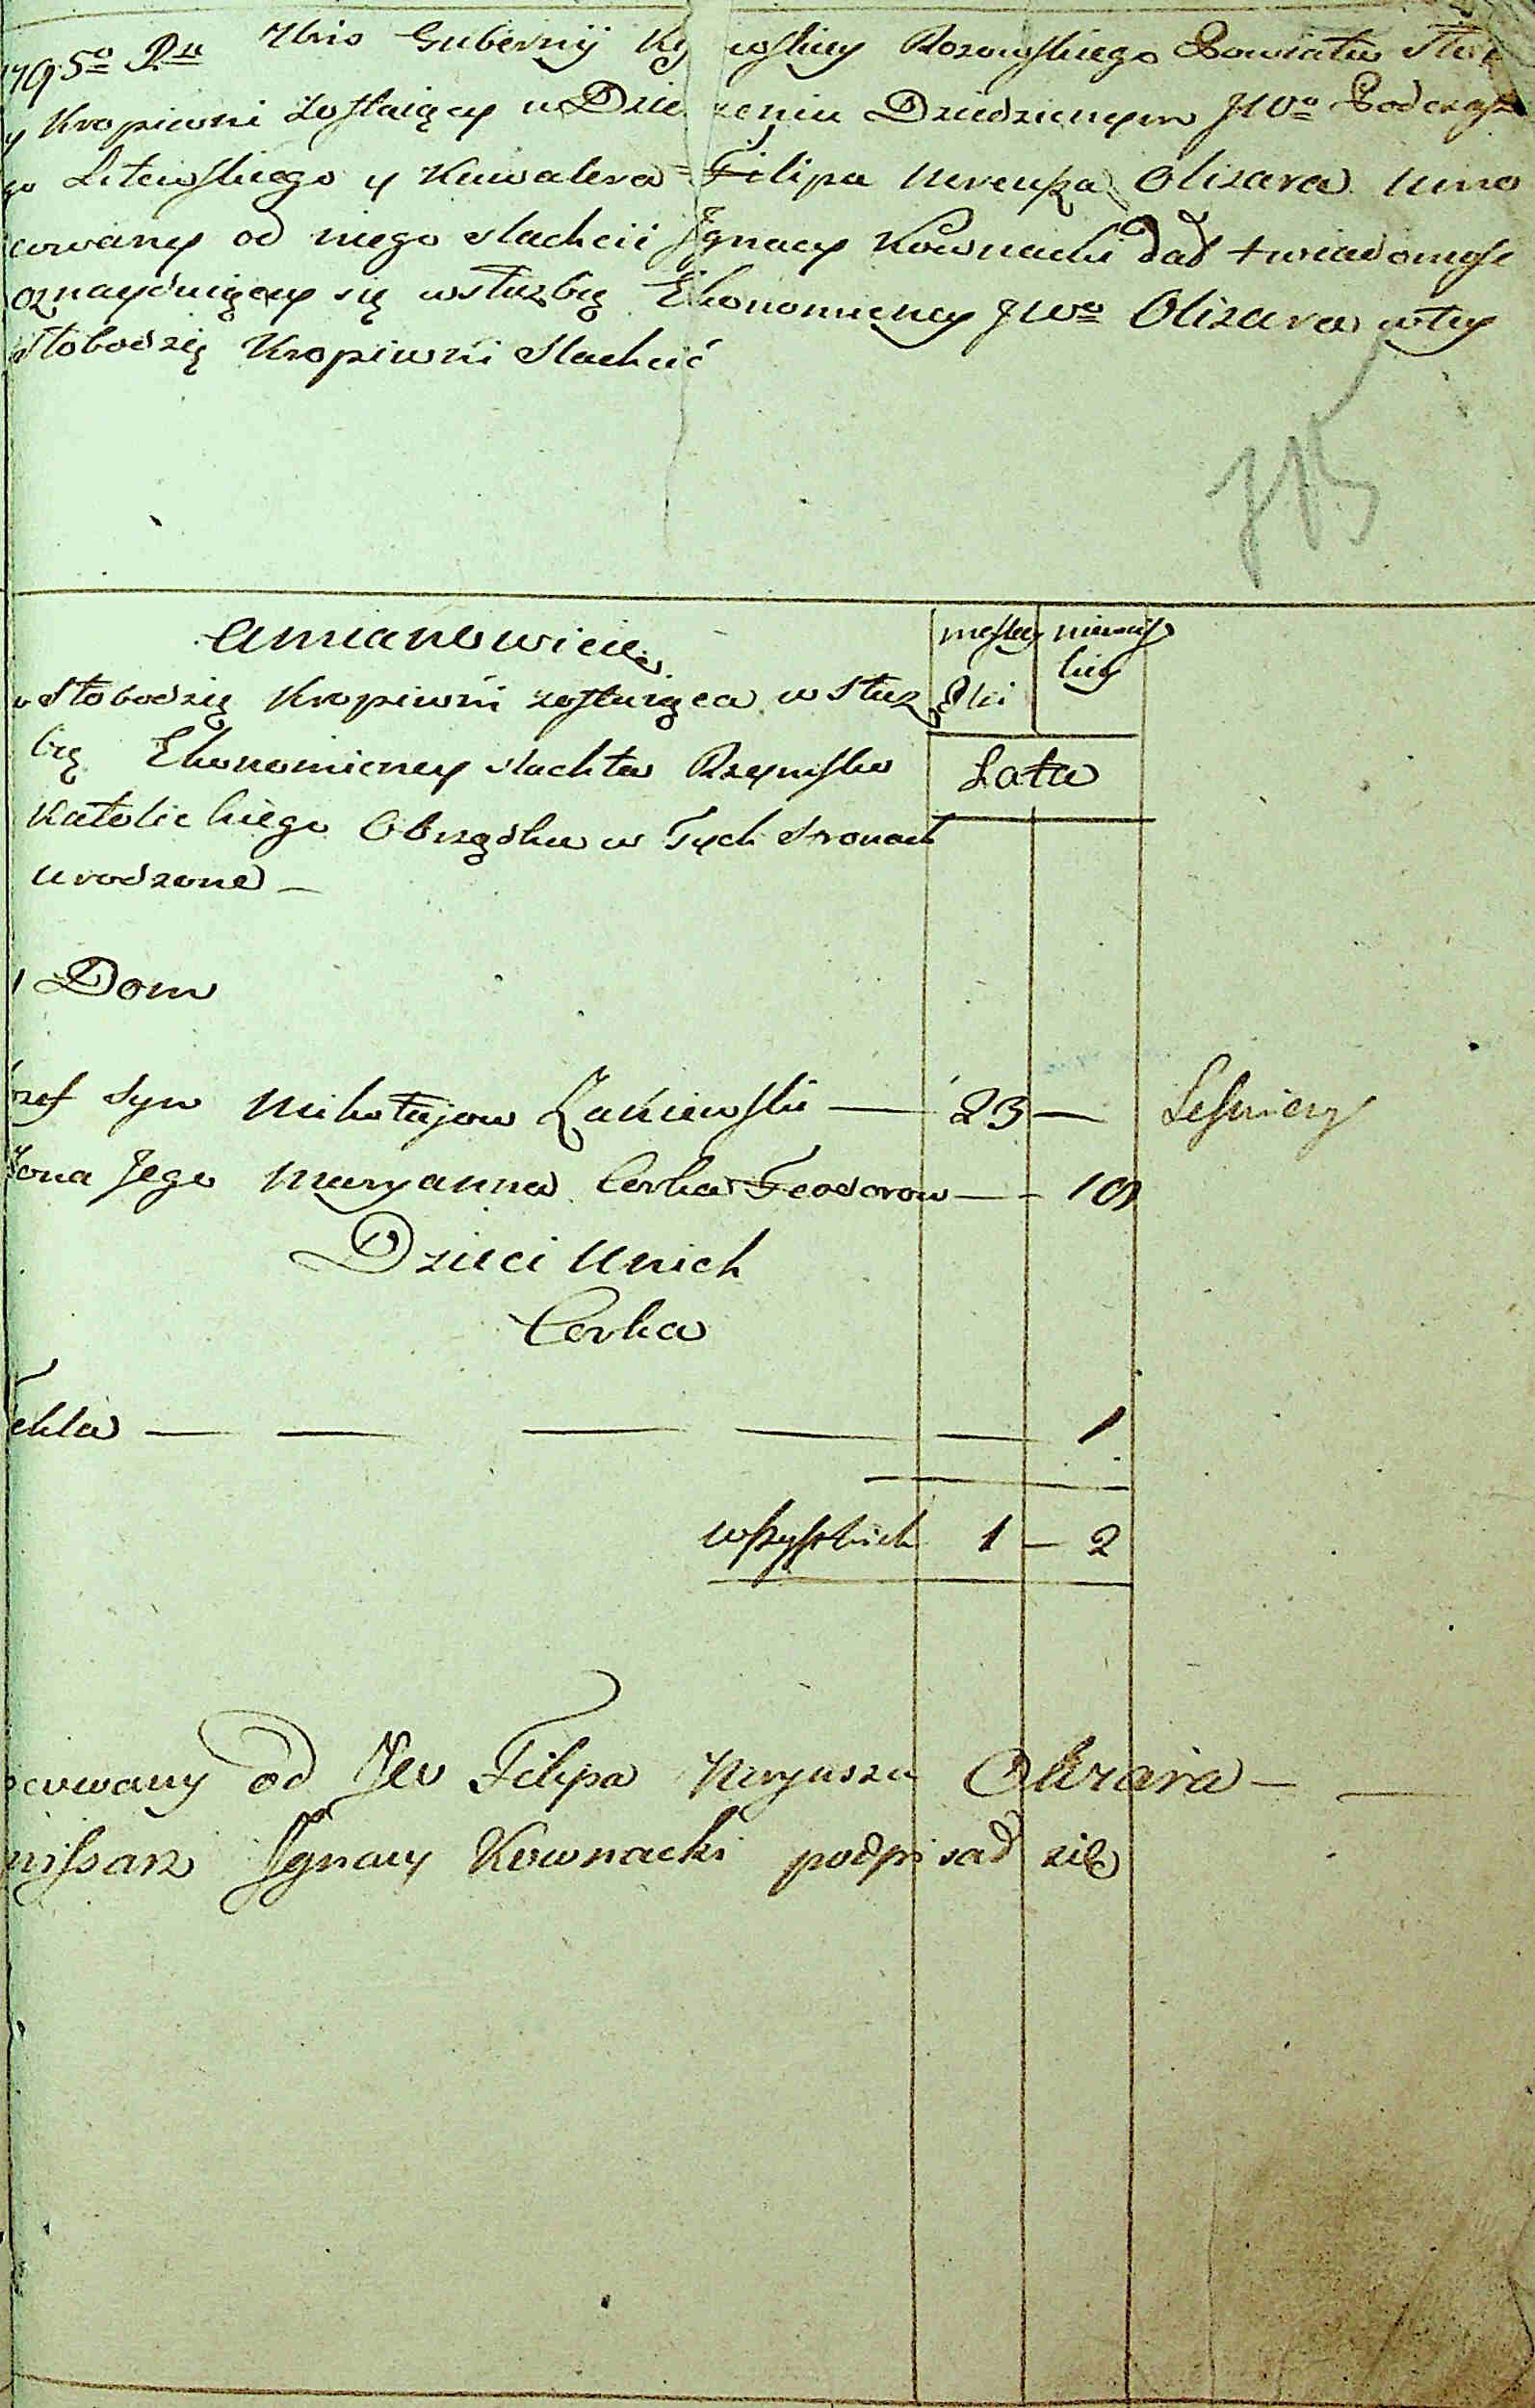 1795º Ru 7bris Guberniy Ky owskiey Rozowskiego Powiatu
y Kropiwni zostaiący w Dzie zeniu Dziedzicznym JWº Podczasz
go Litewskiego y Kawalera Filipa Olizara umo
cowany od niego slachcic Jgnacy Kownacki dał wiadomość
oznayduiącey się w służbię Ekonomiczney JWº Olizara w tey
słobodzię Kropiwni slachcic
715
Amianowicie
męskey niewieś
w słobodzię Kropiwni zostaiąca w służ Płci kiey
bię Ekonomiczney slachta Rzymsko
Lata
Katolickiego Obrządku w Tych stronach
urodzone —
1 Dom
ózef syn Mikołajow Zakiewski — 23 — Leśniczy
żona Jego Maryanna Corka Teodorow — 19
Dzieci unich
Corka
Tekla — — — — — 1
wszystkich 1 — 2
ocowany od Filipa Olizara —
missarz Jgnacy Kownacki podpisał się